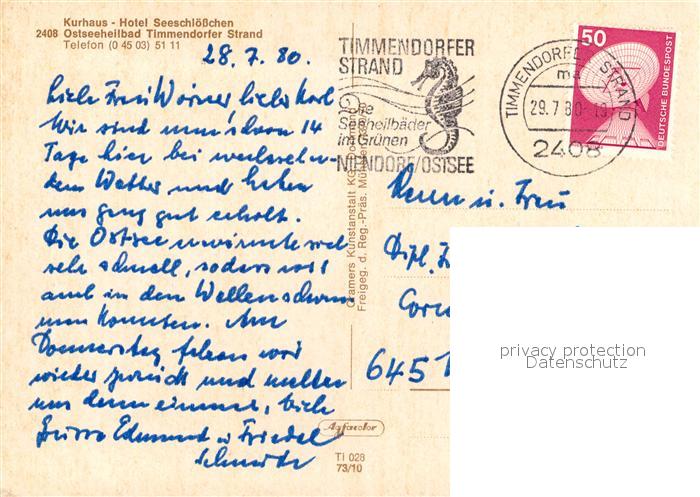 Kurhaus - Hotel Seeschlößchen
2408 Ostseeheilbad Timmendorfer Strand
Telefon (0 45 03) 51 11
28.7.80.
Liebe Frau Wörner, lieber Karl
Wir sind nun schon 14
Tage hier bei wechseln-
dem Wetter und haben
uns ganz gut erholt.
Die Ostsee erwärmte sich
sehr schnell, sodass wir
auch in den Wellen schwim-
men konnten. Am
Donnerstag fahren wir
wieder zurück und melden
uns dann einmal, viele
Grüsse Edmund u. Friedel
TIMMENDORFER
STRAND
Die
Seeheilbäder
im Grünen
NIENDORF/OSTSEE
TIMMENDORFER STRAND
ma
29.7.80-19
2408
50
DEUTSCHE BUNDESPOST
Cramers Kunstanstalt KG, Dortmund
Freigeg. d. Reg.-Präs. Münster
Herrn u. Frau
Dipl.
6451
privacy protection
Datenschutz
Agfacolor
TI 028
73/10